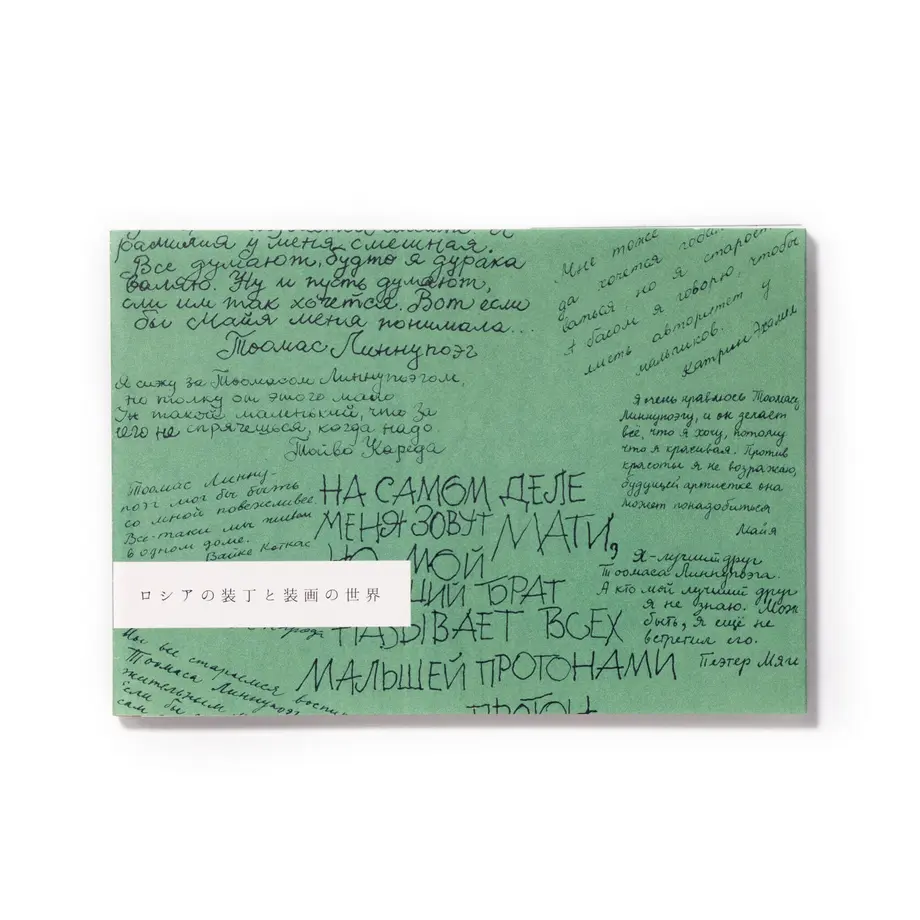 фамилия у меня смешная.
Все думают, будто я дурака
валяю. Ну и пусть думают,
если им так хочется. Вот если
бы Майя меня понимала...
Тоомас Линнупоэг
Я сижу за Тоомасом Линнупоэгом,
но толку от этого мало
Он такой маленький, что за
него не спрячешься, когда надо.
Тойво Кареда
Тоомас Линну-
поэг мог бы быть
со мной повежливее.
Все-таки мы живем
в одном доме.
Вайке Коткас
Мне тоже
да хочется
ваться, но я
басом я говорю, чтобы
авторитет у
мальчиков.
Катрин
Я очень нравлюсь Тоомасу
Линнупоэгу, и он делает
всё, что я хочу, потому
что я красивая. Против
красоты я не возражаю,
будущей артистке она
может понадобиться
Майя
НА САМОМ ДЕЛЕ
МЕНЯ ЗОВУТ МАТИ,
НО МОЙ
БРАТ
НАЗЫВАЕТ ВСЕХ
МАЛЫШЕЙ ПРОТОНАМИ
ПРОТОН
Я-лучший друг
Тоомаса Линнупоэга.
А кто мой лучший друг
я не знаю. Мож
быть, я ещё не
встретил его.
Пеэтер Мяги
ロシアの装丁と装画の世界
Мы все стараемся
Тоомаса Линнупоэг
жительным
если бы
сам